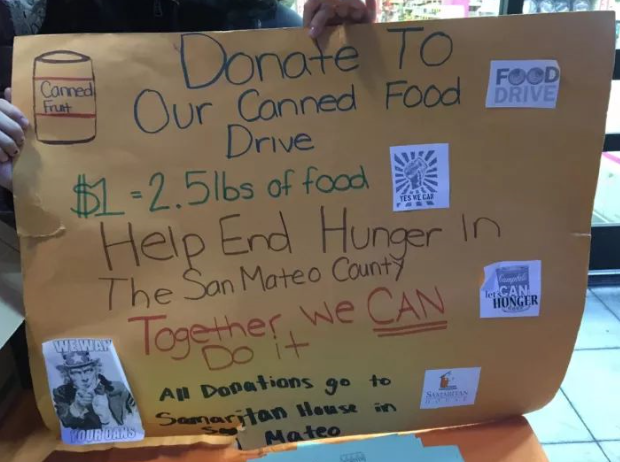 Donate To
Canned
Fruit
Our Canned Food
Drive
FOOD
DRIVE
$1 = 2.5lbs of food
YES WE CAN
Help End Hunger In
The San Mateo County
let's CAN
HUNGER
Together we CAN
Do it
WE WANT
YOUR CANS
All Donations go to
Samaritan House in
San Mateo
SAMARITAN
HOUSE